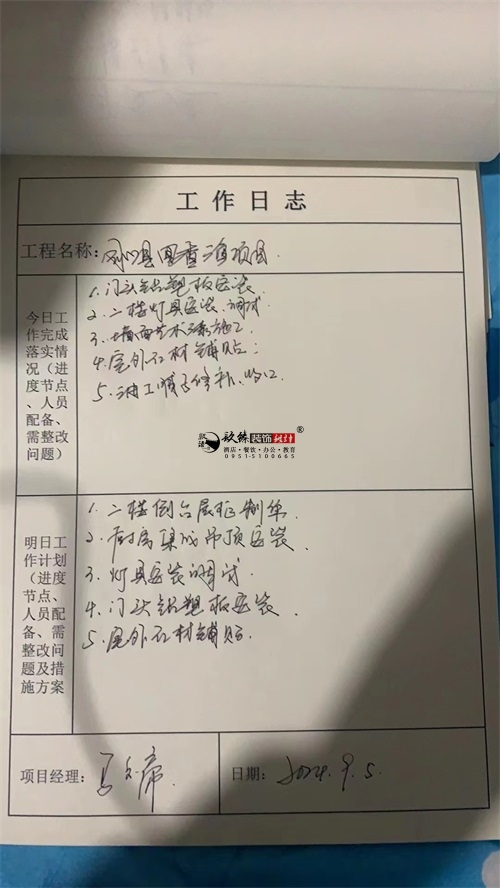 工作日志
工程名称:
今日工作完成落实情况(进度节点、人员配备、需整改问题)
1. 门头铝塑板安装
2. 二楼灯具安装、调试
3. 墙面艺术漆施工
4. 屋外石材铺贴;
5. 油工修补、收口
玖臻装饰设计®
酒店·餐饮·办公·教育
0951-5100665
明日工作计划(进度节点、人员配备、需整改问题及措施方案
1. 二楼倒台展柜制作
2. 厨房集成吊顶安装
3. 灯具安装调试
4. 门头铝塑板安装
5. 屋外石材铺贴.
项目经理:
日期: 2024.9.5.